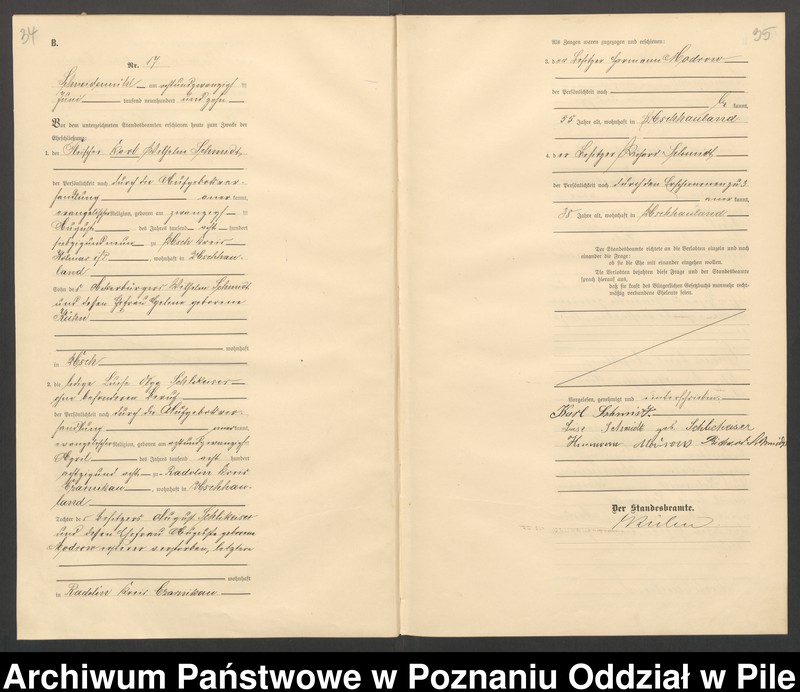 34
B.
Nr. 17
Schneidemühl am achtundzwanzig ten
Juni tausend neunhundert und zehn
Vor dem unterzeichneten Standesbeamten erschienen heute zum Zwecke der
Eheschließung:
1. der Fleischer Karl Wilhelm Schmidt,
der Persönlichkeit nach durch die Aufgebotsver-
handlung anerkannt,
evangelischer Religion, geboren am zwanzig ten
August des Jahres tausend acht hundert
siebzigundneun zu Usch Kreis
Kolmar i/P., wohnhaft in Uschhau-
land
Sohn des Ackerbürgers Wilhelm Schmidt
und dessen Ehefrau Helene geborene
wohnhaft
in Usch
2. die ledige Luise
ohne besonderen Beruf
der Persönlichkeit nach durch die Aufgebotsver-
handlung anerkannt,
evangelischer Religion, geboren am achtundzwanzig ten
April des Jahres tausend acht hundert
achtzigund acht zu Radolin Kreis
Czarnikau, wohnhaft in Uschhau-
land
Tochter des Besitzers August
und dessen Ehefrau Auguste geborene
Modrow ersterer verstorben, letztere
wohnhaft
in Radolin Kreis Czarnikau
35
Als Zeugen waren zugezogen und erschienen:
3. der Besitzer Hermann Modrow
der Persönlichkeit nach
kannt,
55 Jahre alt, wohnhaft in Uschhauland
4. der Besitzer Richard Schmidt,
der Persönlichkeit nach durch den Erschienenen zu 3
anerkannt,
35 Jahre alt, wohnhaft in Uschhauland
Der Standesbeamte richtete an die Verlobten einzeln und nach
einander die Frage:
ob sie die Ehe mit einander eingehen wollen.
Die Verlobten bejahten diese Frage und der Standesbeamte
sprach hierauf aus,
daß sie kraft des Bürgerlichen Gesetzbuchs nunmehr recht-
mäßig verbundene Eheleute seien.
Vorgelesen, genehmigt und unterschrieben
Karl Schmidt.
Luise Schmidt geb.
Hermann Richard Schmidt
Der Standesbeamte.
Archiwum Państwowe w Poznaniu Oddział w Pile